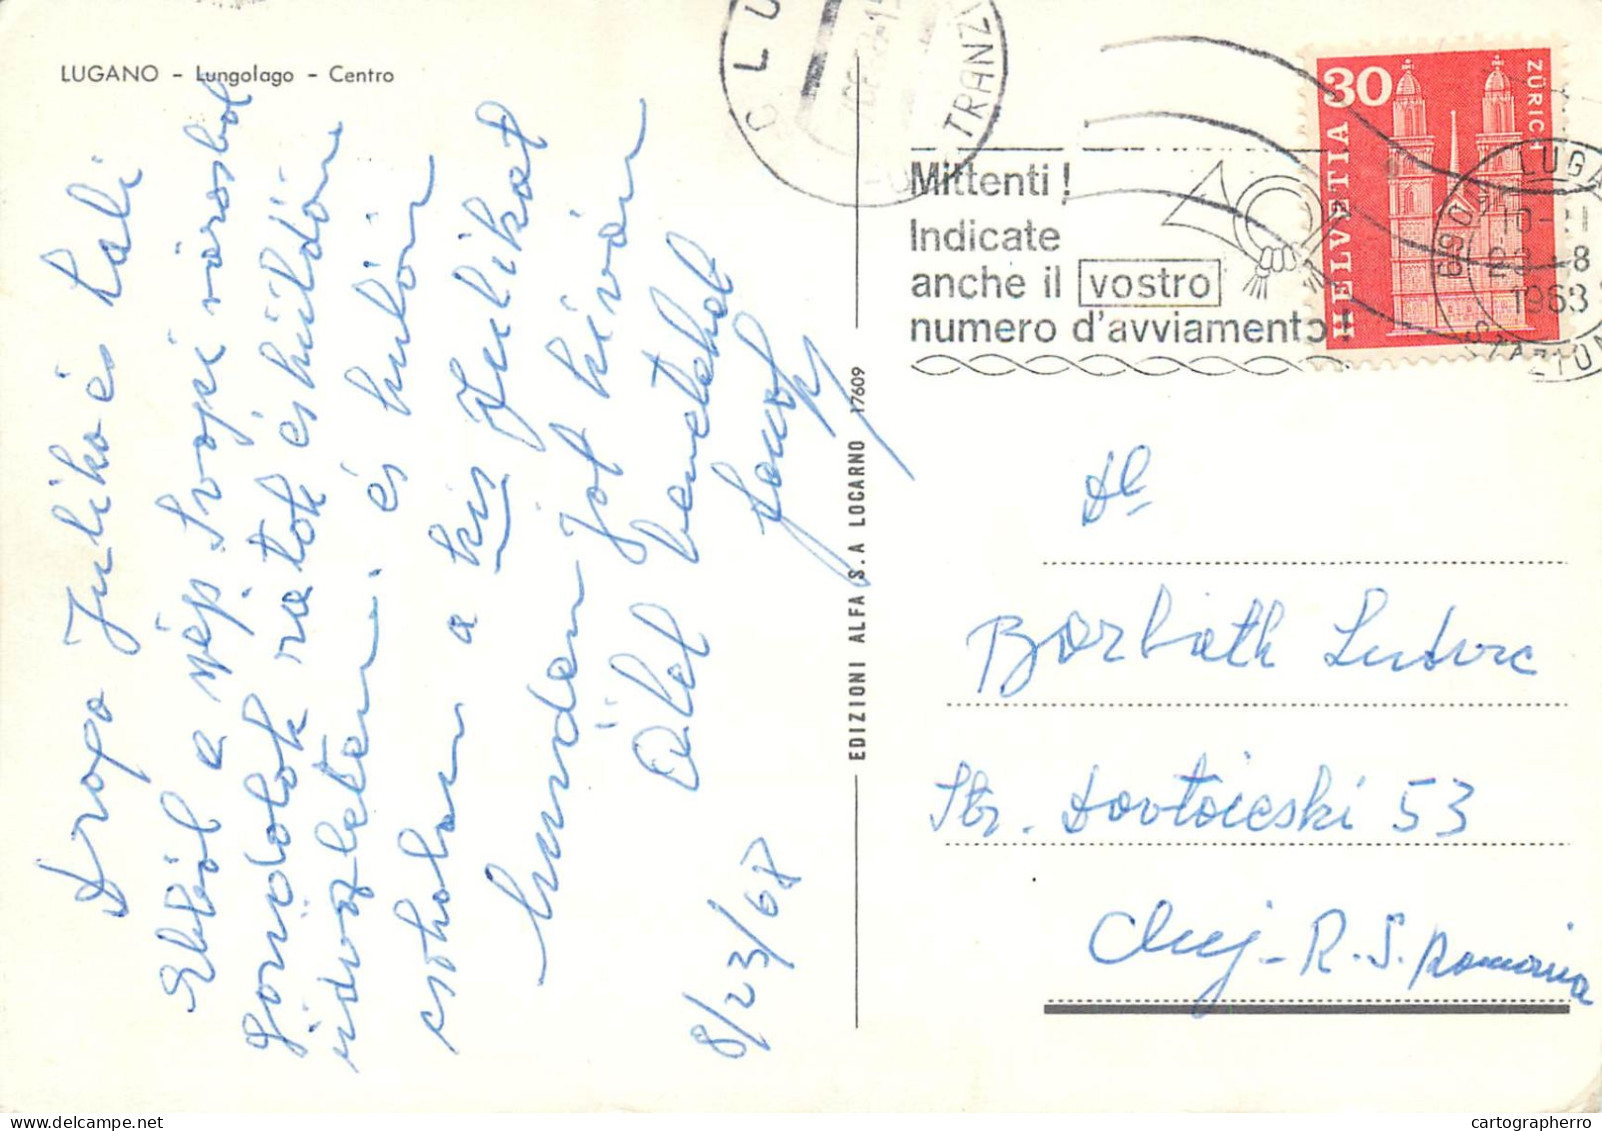 LUGANO – Lungolago – Centro
Draga Juliko és Lali
Ebből a szép Svájci városból
gondolok rátok és küldöm
üdvözletem. és külön
csókolom a kis Julikát
minden jót kíván
Ölel benneteket
8/23/68
EDIZIONI ALFA S.A LOCARNO 17609
CLU
TRANZ
Mittenti !
Indicate
anche il vostro
numero d'avviamento !
30
HELVETIA
ZÜRICH
6900 LUGA
10-11
23. 8
1968
STAZION
Dl
Barbath Ludovic
Str. Dovtoieski 53
Cluj - R. S. Romania
cartographerro